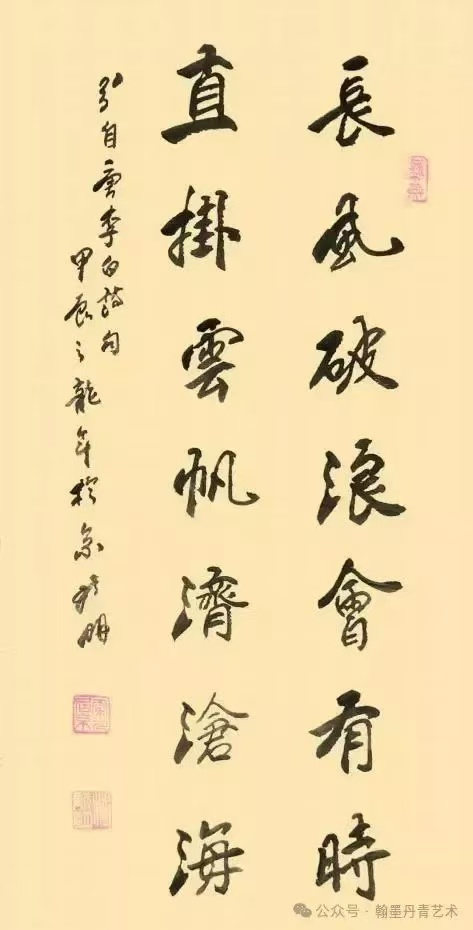 長風破浪會有時
直掛雲帆濟滄海
引自唐李白詩句
甲辰之龍年於京
公众号 · 翰墨丹青艺术